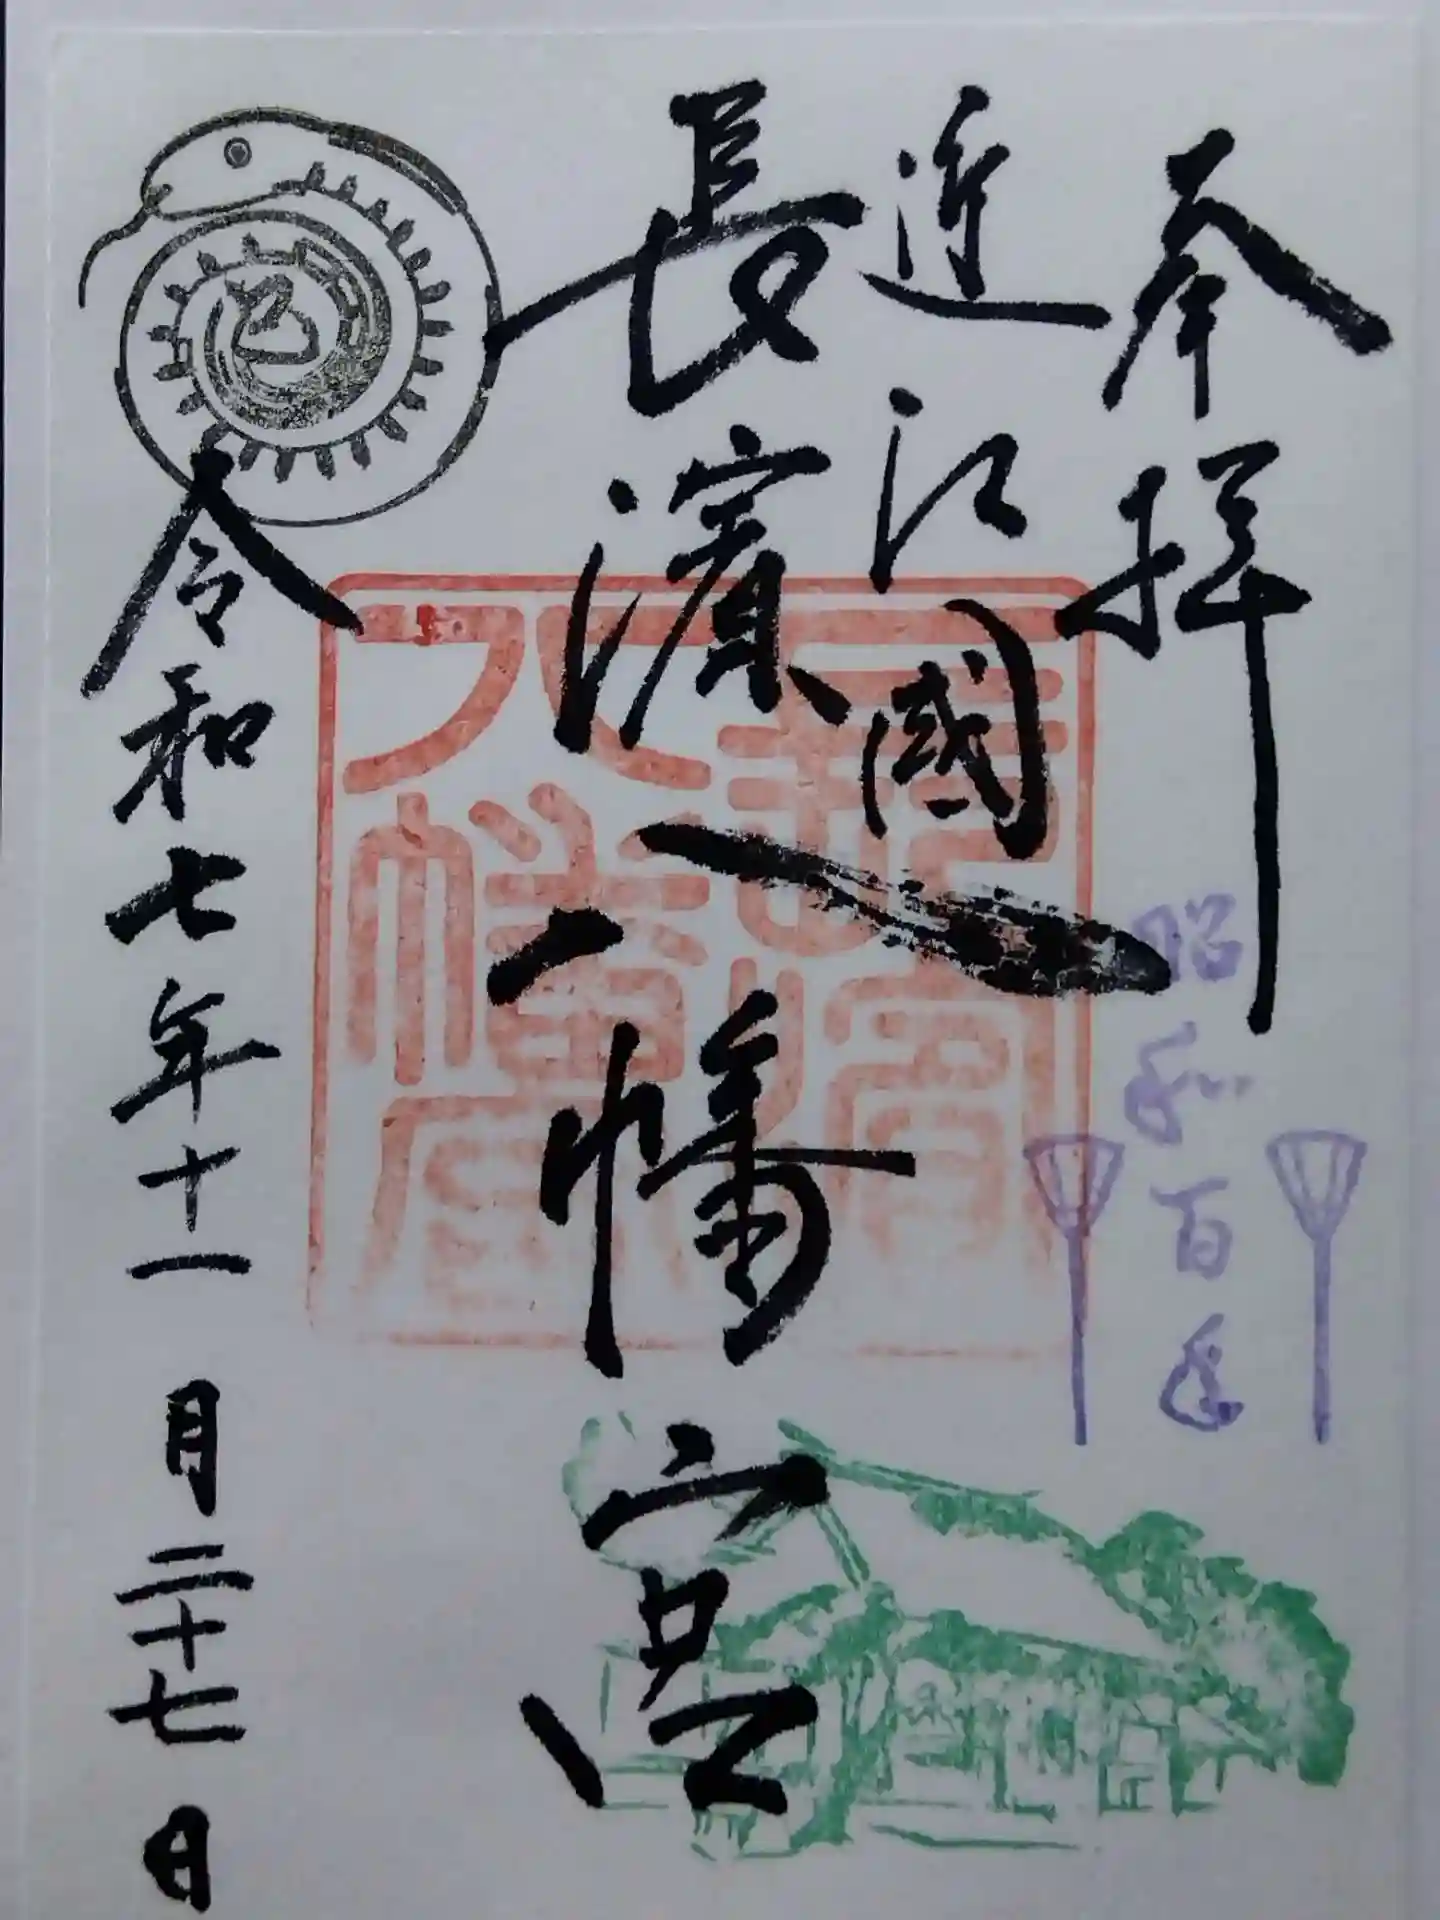 奉拝
昭和百年
近江國
長濱八幡宮
長濱八幡宮
巳
令和七年十一月二十七日